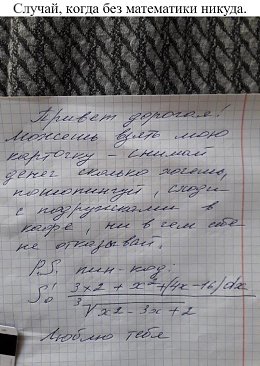 Случай, когда без математики никуда.
Привет дорогая!
Можешь взять мою
карточку - снимай
денег сколько хочешь,
пошопингуй, сходи
с подружками в
кафе, ни в чем себе
не отказывай.
P.S. пин-код:
∫₀¹ (3x2 + x² + (4x - 16) dx
³√x2 - 3x + 2
Люблю тебя